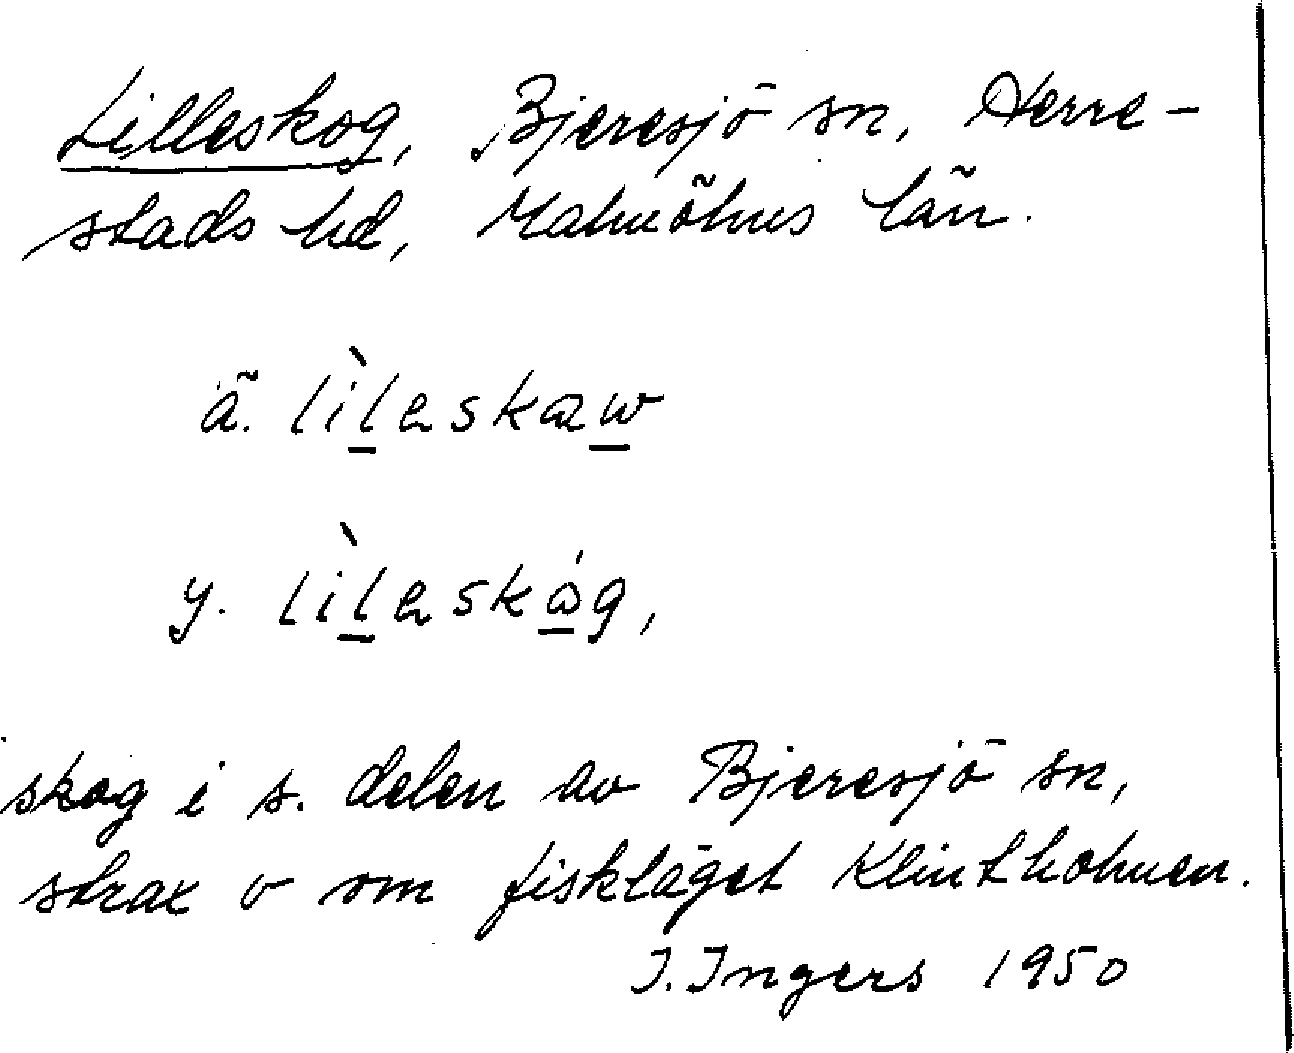 Lilleskog, Bjeresjö sn, Herre-
stads hd, Malmöhus län.
ä. lìleskaw
y. lìleskóg,
skog i s. delen av Bjeresjö sn,
strax v om fiskläget Klintholmen.
I. Ingers 1950